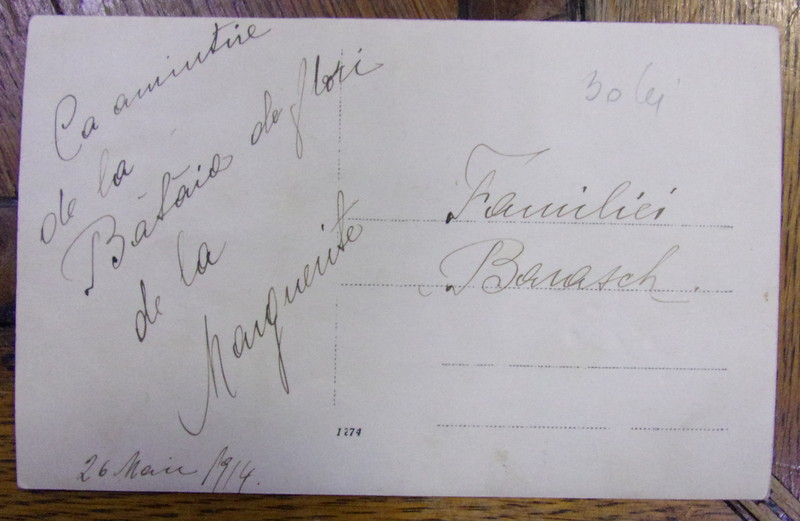 Ca amintire
de la
Bătăia de flori
de la
Marguerite
26 Maiu 1914.
30 lei
Familiei
Barasch.
1274